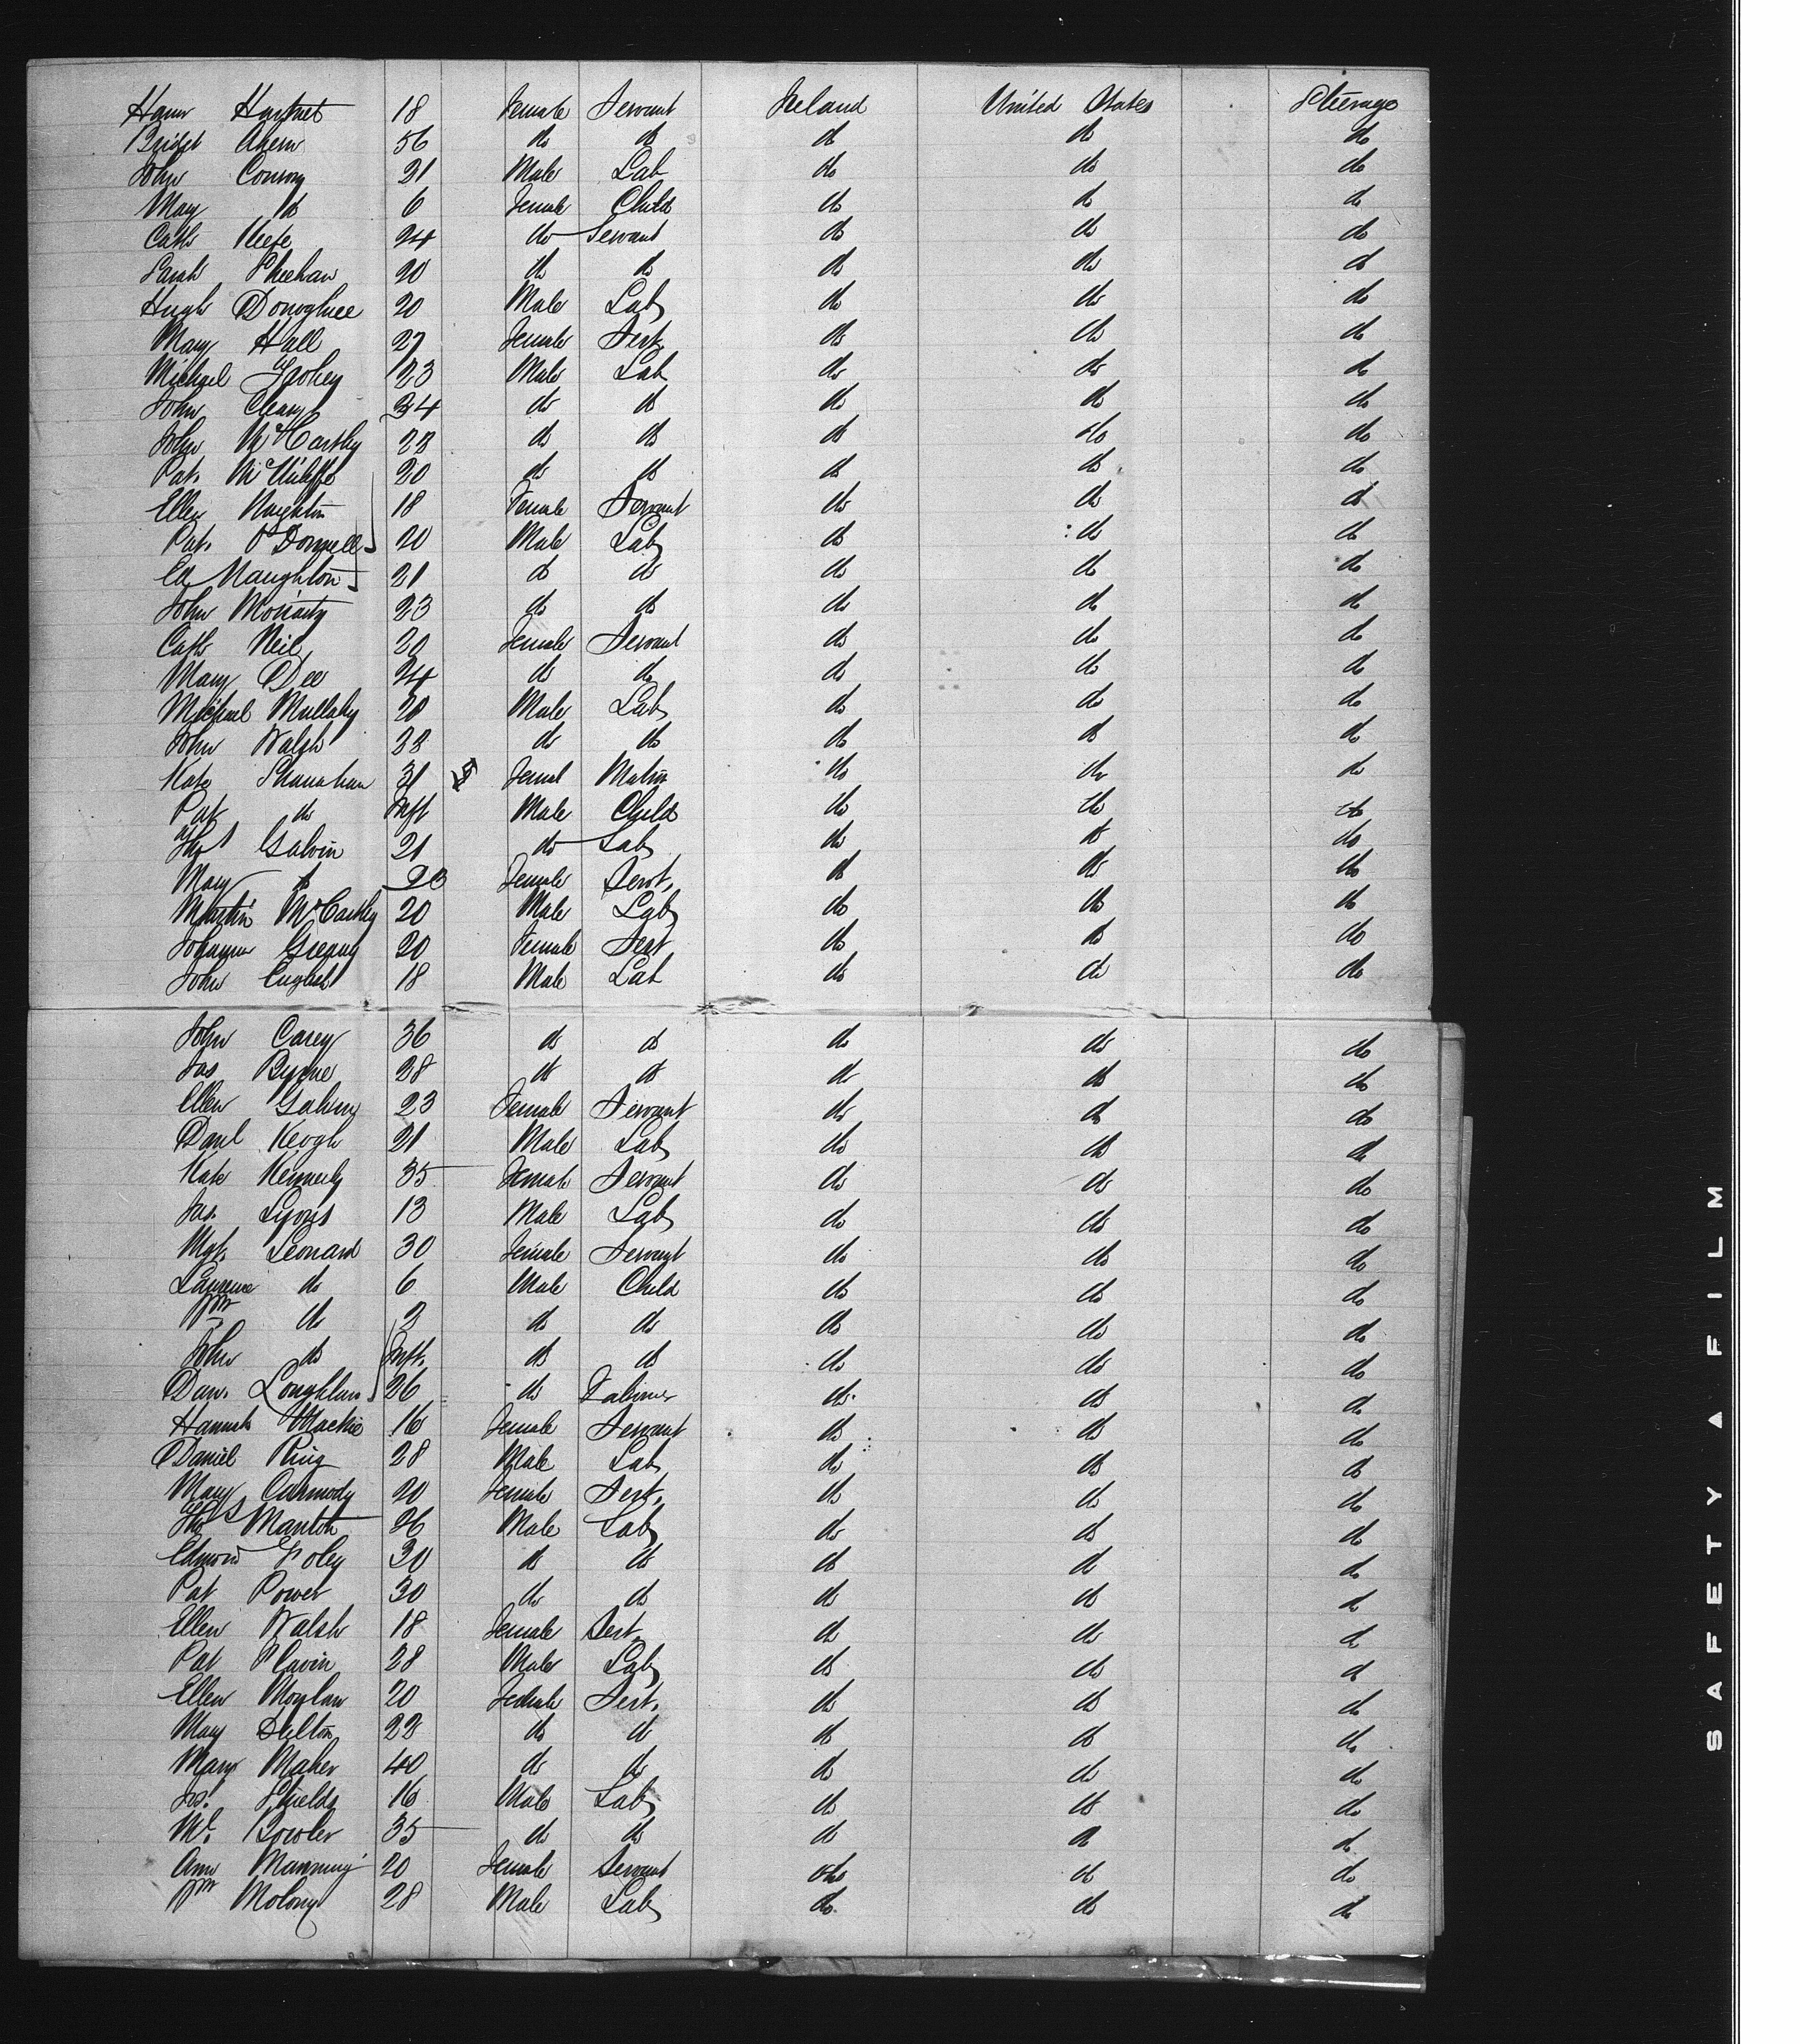 Hann Hartnet 18 Female Servant Ireland United States Steerage
Bridget Ahern 56 do do do do do
John Conroy 21 Male Lab do do do
Mary do 6 Female Child do do do
Cath Keefe 24 do Servant do do do
Sarah Sheehan 20 do do do do do
Hugh Donoghuee 20 Male Lab do do do
Mary Hall 27 Female Sert. do do do
Michael 23 Male Lab do do do
John Cleary 34 do do do do do
John McCarthy 22 do do do do do
Pat. McAuliffe 20 do do do do do
Ellen Naughton 18 Female Servant do do do
Pat. O'Donnell 20 Male Lab do do do
Ed Naughton 21 do do do do do
John Moriarty 23 do do do do do
Cath Neil 20 Female Servant do do do
Mary Dee 24 do do do do do
Michael Mullaly 20 Male Lab do do do
John Walsh 22 do do do do do
Kate Shanahan 31 Femal Matrn do do do
Pat do Inft Male Child do do do
Thos Galvin 21 do Lab do do do
Mary do 23 Female Servt. do do do
Martin McCarthy 20 Male Lab do do do
Johanna Greany 20 Female Sert do do do
John English 18 Male Lab do do do
John Carey 36 do do do do do
Jas Byrne 28 do do do do do
Ellen 23 Female Servant do do do
Danl Keogh 21 Male Lab do do do
Kate Kennedy 35 Female Servant do do do
Jas. Lyons 13 Male Lab do do do
Mgt. Leonard 30 Female Servant do do do
Laurence do 6 Male Child do do do
Wm do 2 do do do do do
John do Inft. do do do do do
Dan. Loughlan 26 do do do do
Hannah Mackie 16 Female Servant do do do
Daniel Ring 28 Male Lab do do do
Mary Carmody 20 Female Sert. do do do
Thos 26 Male Lab do do do
Edmond Foley 30 do do do do do
Pat Power 30 do do do do do
Ellen Walsh 18 Female Sert. do do do
Pat Slavin 28 Male Lab do do do
Ellen Moylan 20 Female Sert. do do do
May 22 do do do do do
Mary Maher 40 do do do do do
Jas. Shields 16 Male Lab do do do
Ml. Bowler 35 do do do do do
Ann Manning 20 Female Servant do do do
Wm Molony 28 Male Lab do do do
SAFETY ▲ FILM